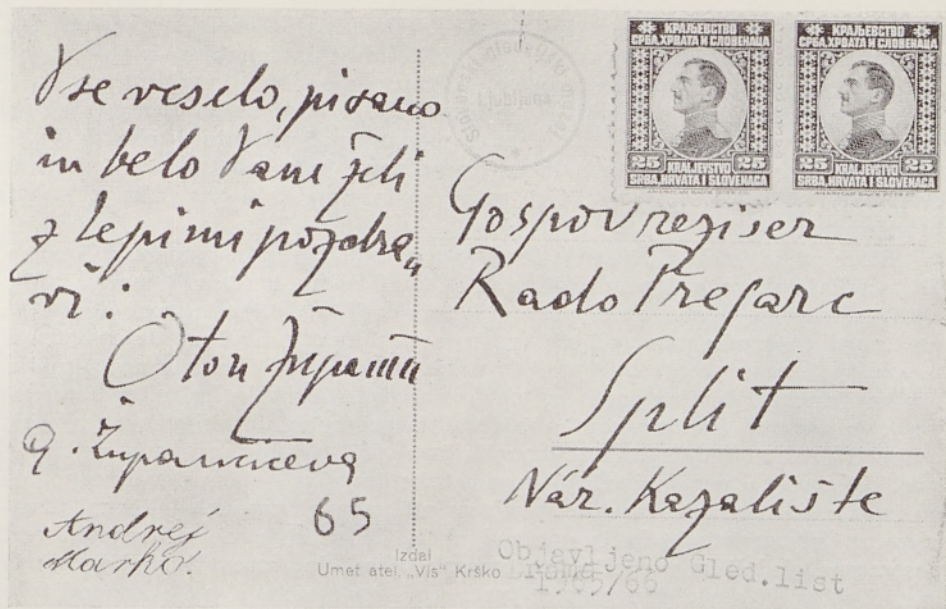 Vse veselo, pisano
in belo Vam želi
z lepimi pozdra„
vi:
Oton Župančič
A. Župančičeva
Andrej
Marko.
65
Slovenski gledališki
Ljubljana
КРАЉЕВСТВО
СРБА, ХРВАТА И СЛОВЕНАЦА
25 25
KRALJEVSTVO
SRBA, HRVATA I SLOVENACA
КРАЉЕВСТВО
СРБА, ХРВАТА И СЛОВЕНАЦА
25 25
KRALJEVSTVO
SRBA, HRVATA I SLOVENACA
Gospod režiser
Rado Pregarc
Split
Nar. Kazalište
Izdal
Umet atel. „Vis" Krško
Objavljeno Gled.list
1965/66